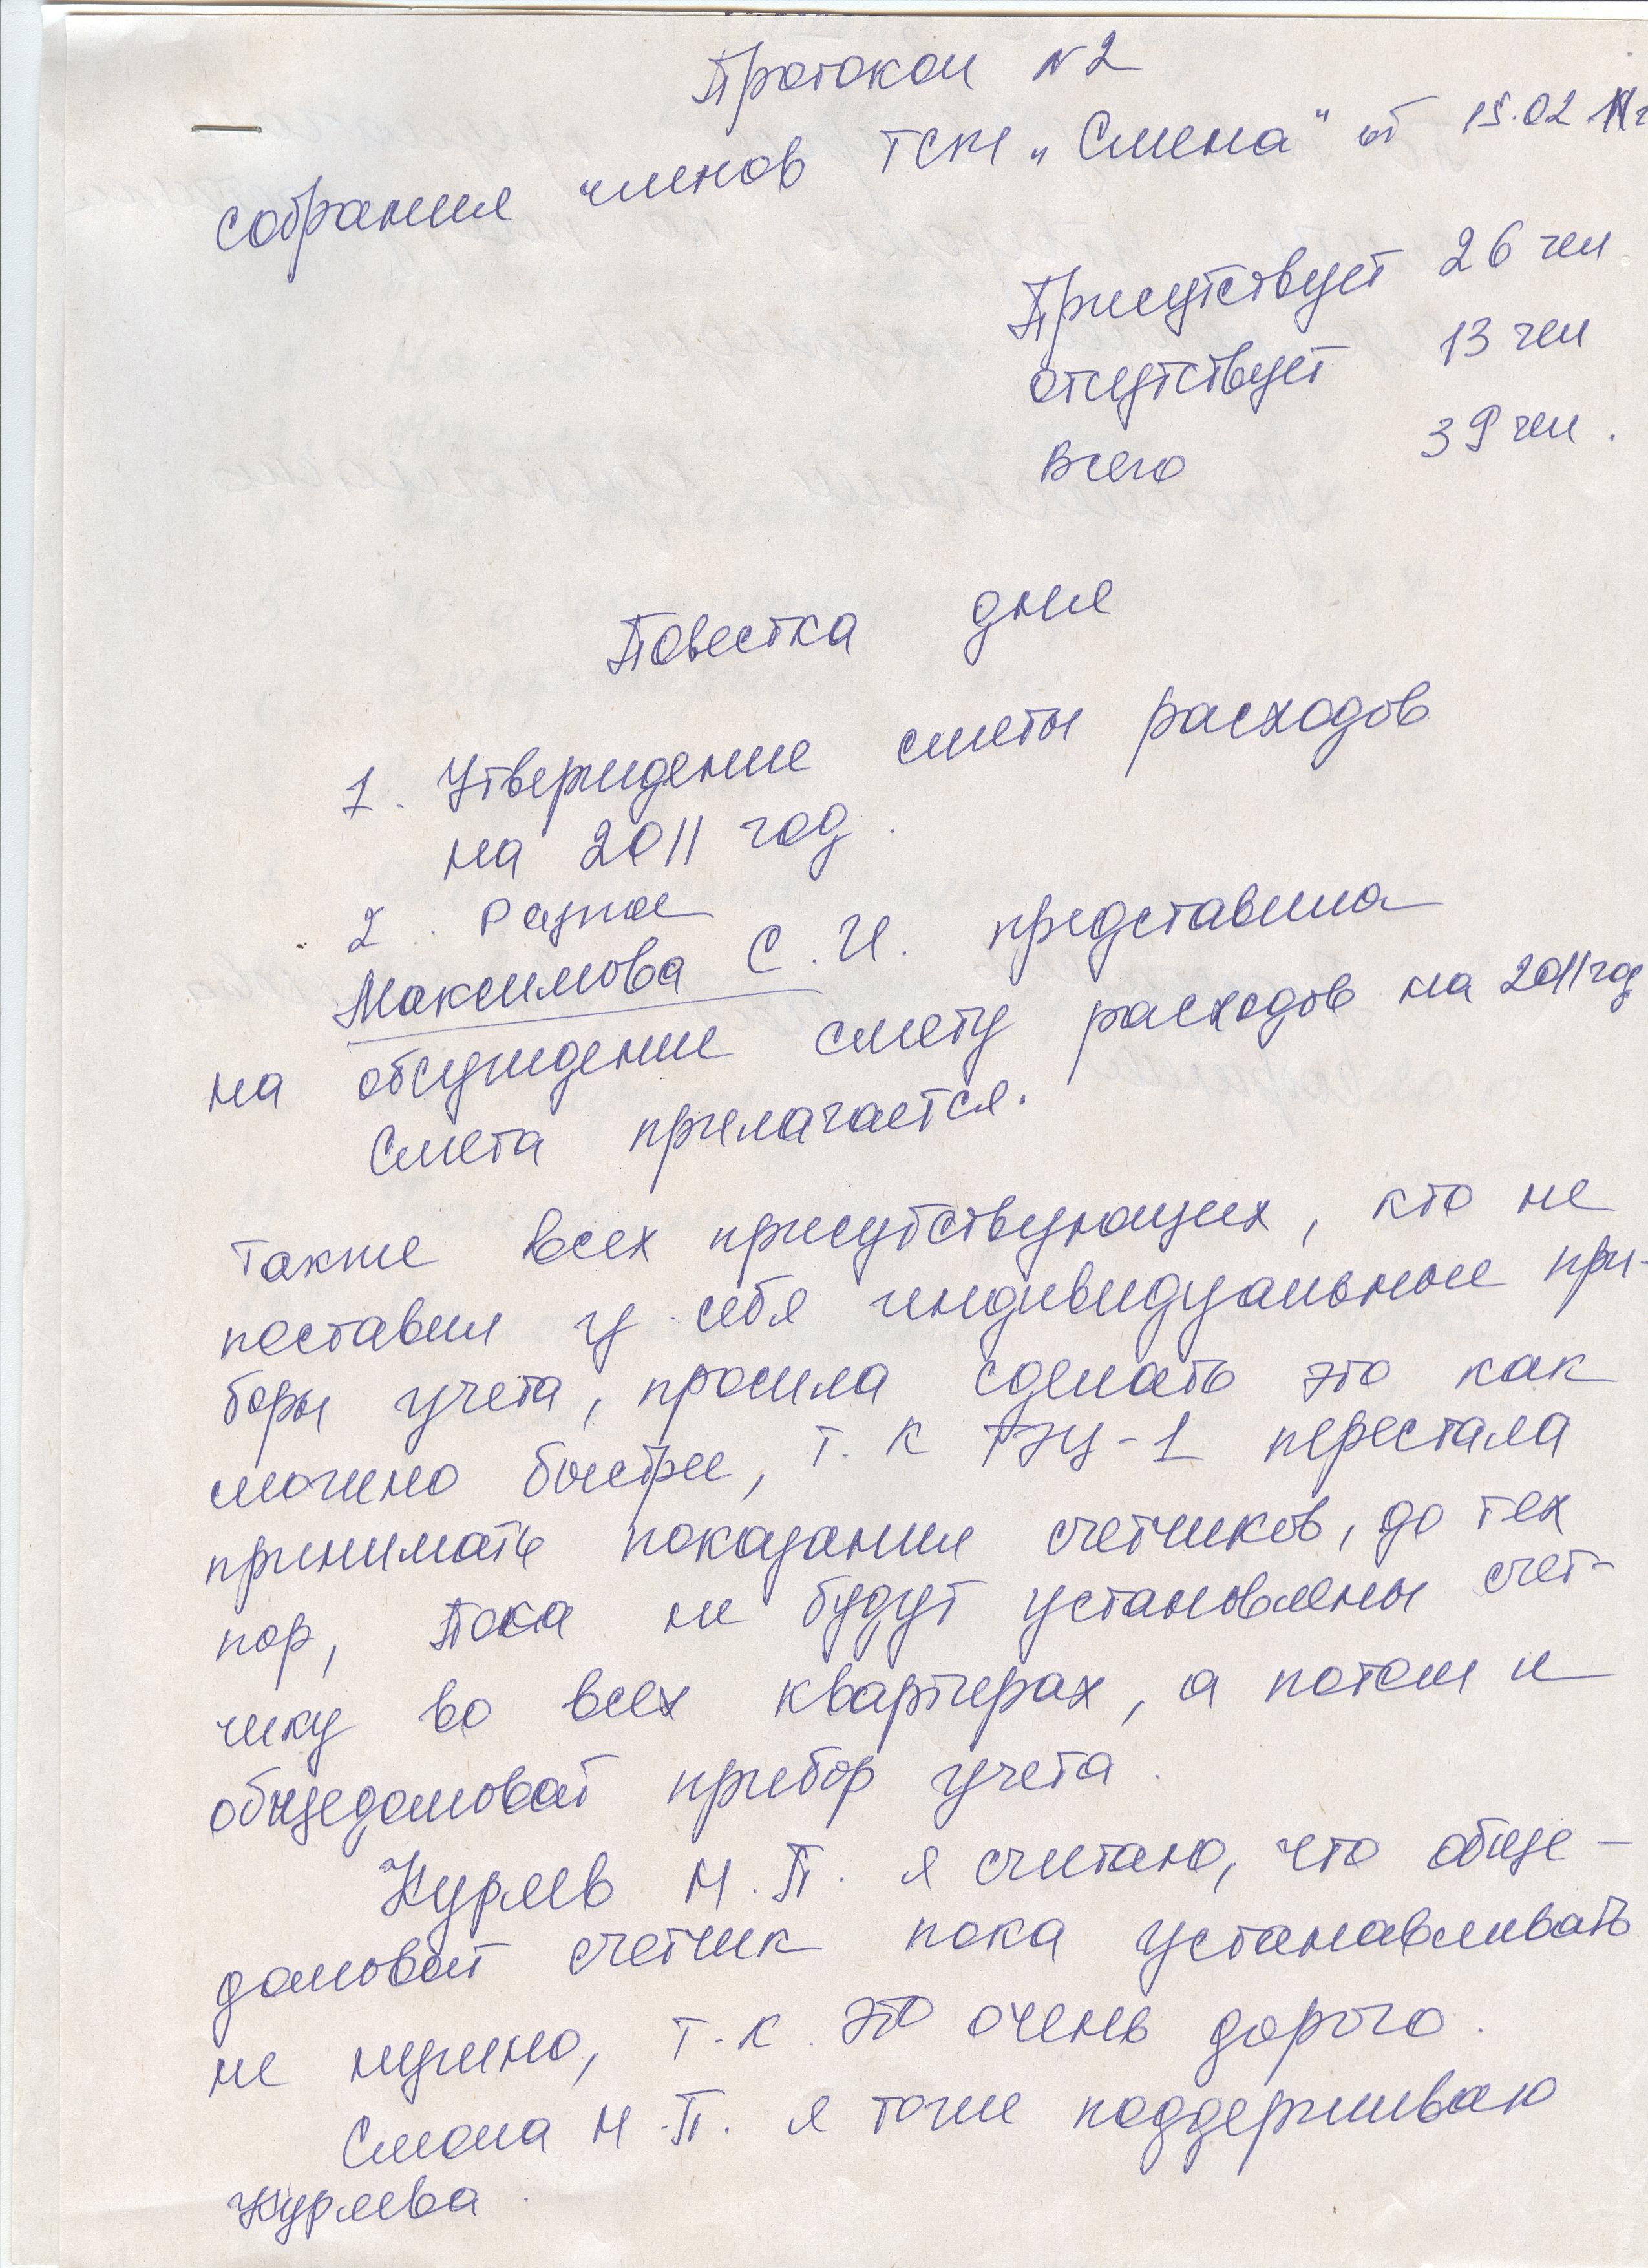 Протокол N 2
собрания членов ТСЖ „Смена" от 15.02.11г
Присутствует 26 чел
отсутствует 13 чел
Всего 39 чел.
Повестка дня
1. Утверждение сметы расходов
на 2011 год.
2. Разное
Максимова С.И. представила
на обсуждение смету расходов на 2011 год
Смета прилагается.
Также всех присутствующих, кто не
поставил у себя индивидуальные при-
боры учета, просила сделать это как
можно быстрее, т.к ТЭЦ-1 перестала
принимать показания счетчиков, до тех
пор, пока не будут установлены счет-
чику во всех квартирах, а потом и
общедомовой прибор учета.
Куряев Н.П. я считаю, что обще-
домовой счетчик пока устанавливать
не нужно, т.к. это очень дорого.
Н.П. я тоже поддерживаю
Куряева.